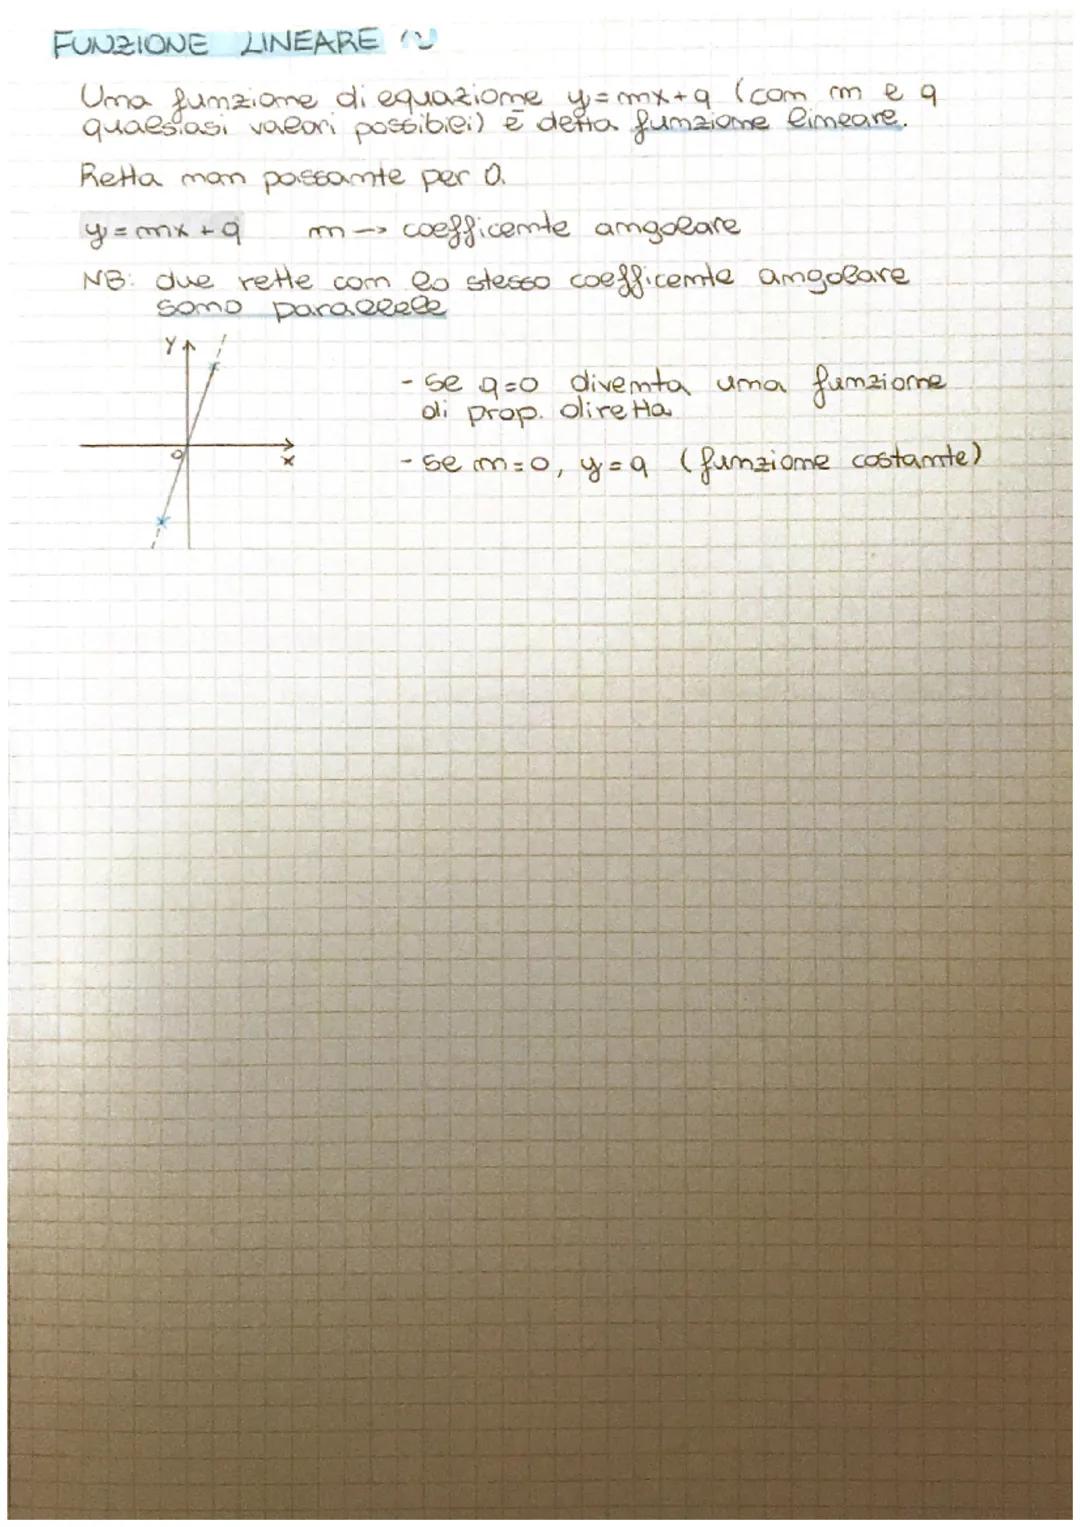 FUNZIONE LINEARE
Una funzione di equazione y=mx+q (con m e q
qualsiasi valori possibili) è detta funzione lineare.
Retta non passante per O.
y=mx+q m → coefficente angolare
NB: due rette con lo stesso coefficente angolare
sono parallele
Y
- se q=0 diventa una funzione
di prop. diretta
O
x
- se m=0, y=q (funzione costante)